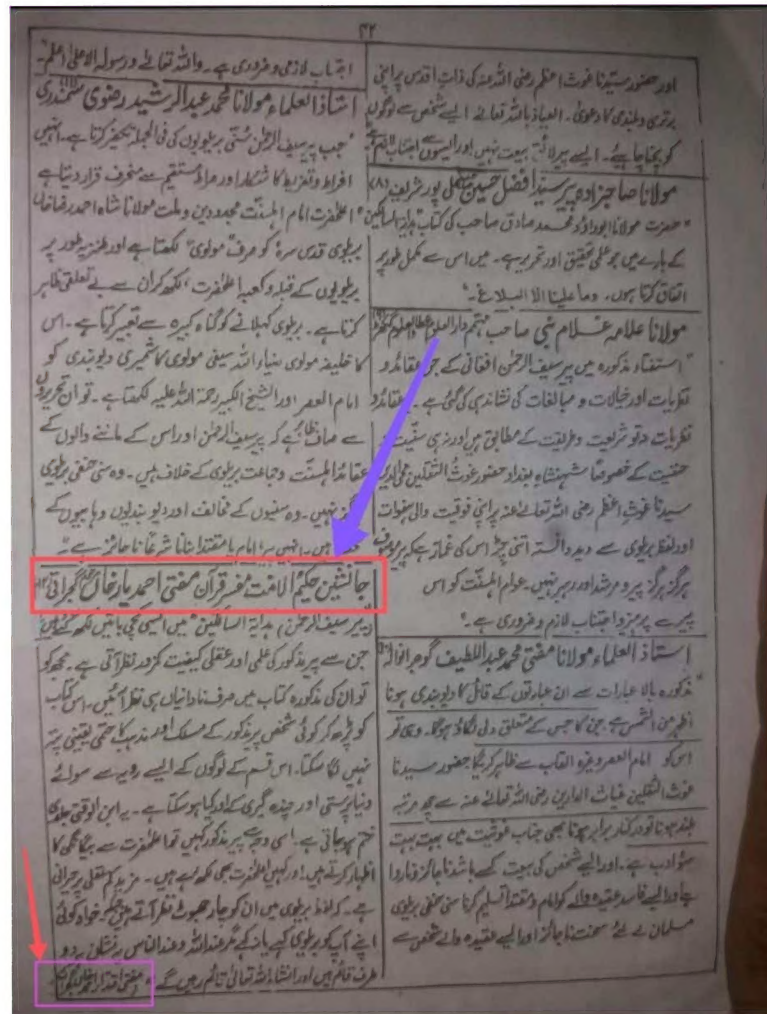 ۴۲
اور حضور سیدنا غوث اعظم رضی اللہ عنہ کی ذاتِ اقدس پر اپنی
برتری و بلندی کا دعویٰ۔ العیاذ باللہ تعالےٰ ایسے شخص سے لوگوں
کو بچنا چاہیئے۔ ایسے پیر لائق بیعت نہیں اور ایسوں سے اجتناب لازم ہے
مولانا صاحبزادہ پیر سید افضل حسین پور شریف (۸)
"حضرت مولانا ابوداؤد محمد صادق صاحب کی کتاب ہدایۃ السالکین
کے بارے میں جو علمی تحقیق اور تحریر ہے۔ میں اس سے مکمل طور پر
اتفاق کرتا ہوں۔ وما علینا الا البلاغ۔"
مولانا علامہ غلام نبی صاحب مہتمم دارالعلوم
"استفتاء مذکورہ میں پیر سیف الرحمٰن افغانی کے جن عقائد و
نظریات اور خیالات و مبالغات کی نشاندہی کی گئی ہے۔ یہ عقائد و
نظریات نہ تو شریعت و طریقت کے مطابق ہیں اور نہ ہی سنّیت و
حنفیت کے خصوصاً شہنشاہِ بغداد حضور غوثُ الثقلین محی الدین
سیدنا غوثِ اعظم رضی اللہ تعالےٰ عنہ پر اپنی فوقیت والی ہفوات
اور لفظ بریلوی سے دیدہ دانستہ اتنی چڑ اس کی غماز ہے کہ پیر موصوف
ہرگز ہرگز پیر و مرشد اور رہبر نہیں۔ عوام اہلسنّت کو اس
پیر سے پرہیز و اجتناب لازم و ضروری ہے۔"
استاذ العلماء مولانا مفتی محمد عبداللطیف گوجرانوالہ
"مذکورہ بالا عبارات سے ان عبارتوں کے قائل کا دیوبندی ہونا
اظہر من الشمس ہے جن کا جس کے متعلق دلی لگاؤ ہوگا۔ وہی تو
اس کو امام العصر وغیرہ القاب سے ظاہر کریگا حضور سیدنا
غوث الثقلین غیاث الدارین رضی اللہ تعالےٰ عنہ سے چھ مرتبہ
بلند ہونا تو درکنار برابر ہونا بھی جناب غوثیت میں بہت بہت
سوءِ ادب ہے۔ اور ایسے شخص کی بیعت کسے باشد ناجائز و ناروا
ہے اور ایسے فاسد عقیدہ والے کو امام و مقتدا تسلیم کرنا سنی حنفی بریلوی
مسلمان کے لئے سخت ناجائز اور ایسے عقیدہ والے شخص سے
اجتناب لازمی و ضروری ہے۔ واللہ تعالےٰ ورسولہ الاعلیٰ اعلم۔
استاذ العلماء مولانا محمد عبدالرشید رضوی سمندری
"جب پیر سیف الرحمٰن سُنّی بریلویوں کی فی الجملہ تکفیر کرتا ہے۔ انہیں
افراط و تفریط کا شکار اور صراطِ مستقیم سے منحرف قرار دیتا ہے
اعلحضرت امام اہلسنّت مجدد دین و ملت مولانا شاہ احمد رضا خاں
بریلوی قدس سرہٗ کو صرف "مولوی" لکھتا ہے اور طنزیہ طور پر
بریلویوں کے قبلہ و کعبہ اعلحضرت، لکھ کر ان سے بے تعلقی ظاہر
کرتا ہے۔ بریلوی کہلانے کو گناہِ کبیرہ سے تعبیر کرتا ہے۔ اس
کا خلیفہ مولوی ضیاء اللہ سیفی مولوی کاشمیری دیوبندی کو
امام العصر اور الشیخ الکبیر رحمۃ اللہ علیہ لکھتا ہے۔ تو ان تحریروں
سے صاف ظاہر ہے کہ پیر سیف الرحمٰن اور اس کے ماننے والوں کے
عقائد اہلسنّت و جماعت بریلوی کے خلاف ہیں۔ وہ سنی حنفی بریلوی
ہرگز نہیں۔ وہ سنیوں کے مخالف اور دیوبندیوں وہابیوں کے
ہیں۔ انہیں پیر، امام یا مقتدا بنانا شرعاً ناجائز ہے۔"
جانشین حکیم الامت مفسرِ قرآن مفتی احمد یار خاں گجراتی (۱۲)
"پیر سیف الرحمٰن ہدایۃ السالکین" میں ایسی کچی باتیں لکھ گئے ہیں
جن سے پیر مذکور کی علمی اور عقلی کیفیت کمزور نظر آتی ہے۔ مجھ کو
تو ان کی مذکورہ کتاب میں صرف نادانیاں ہی نظر آئیں۔ اس کتاب
کو پڑھ کر کوئی شخص پیر مذکور کے مسلک اور مذہب کا حتمی یقینی پتہ
نہیں لگا سکتا۔ اس قسم کے لوگوں کے ایسے رویہ سے سوائے
دنیا پرستی اور چندہ گیری کے اور کیا ہو سکتا ہے۔ یہ ابن الوقتی جلد
ختم ہو جاتی ہے۔ اسی وجہ سے پیر مذکور کہیں تو اعلحضرت سے بیگانگی کا
اظہار کرتے ہیں اور کہیں اعلحضرت بھی لکھ رہے ہیں۔ مزید کم عقلی پر حیرانی
ہے۔ کہ لفظ بریلوی میں ان کو چار جھوٹ نظر آتے ہیں جبکہ خواہ کوئی
اپنے آپ کو بریلوی کہے یا نہ کہے مگر عند اللہ و عند الناس یہ نشان ہر دو
طرف قائم ہیں اور انشاء اللہ تعالیٰ قائم رہیں گے۔" مفتی اقتدار احمد خاں گجرات